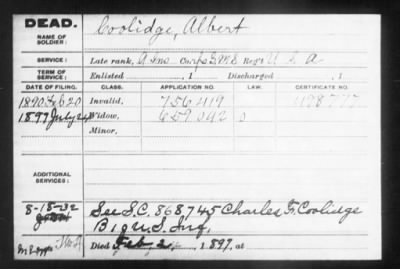 DEAD.
Coolidge, Albert
NAME OF SOLDIER:
SERVICE: Late rank, Corps Reg't U S A
TERM OF SERVICE: Enlisted , 1 Discharged , 1
DATE OF FILING. CLASS. APPLICATION NO. LAW. CERTIFICATE NO.
1890 Feb 20 Invalid, 756419
1897 July 24 Widow, 659042
Minor,
ADDITIONAL SERVICES:
8-18-32 See S.C. 868745 Charles F. Coolidge
U.S. Inf.
Died Feb 2, 1897, at